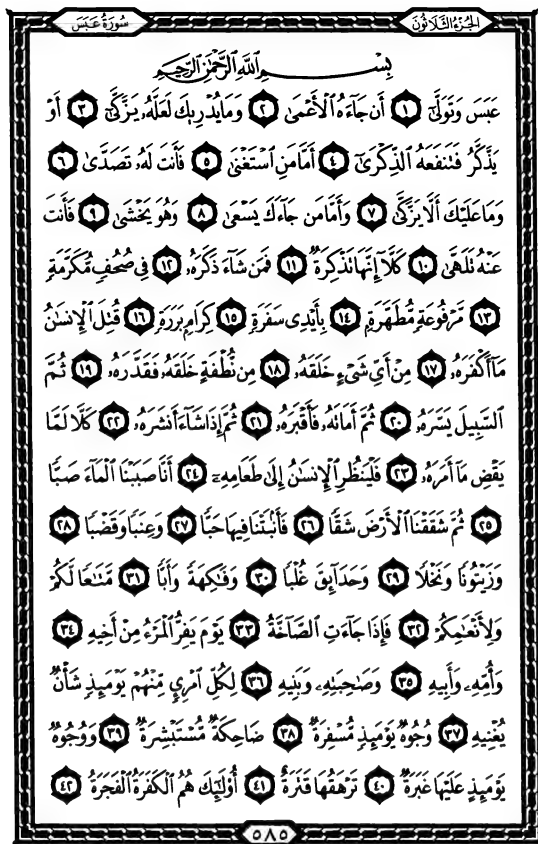 الجُزءُ الثَّلَاثُونَ
سُورَةُ عَبَسَ
بِسْمِ ٱللَّهِ ٱلرَّحْمَٰنِ ٱلرَّحِيمِ
عَبَسَ وَتَوَلَّىٰٓ ١ أَن جَآءَهُ ٱلْأَعْمَىٰ ٢ وَمَا يُدْرِيكَ لَعَلَّهُۥ يَزَّكَّىٰٓ ٣ أَوْ
يَذَّكَّرُ فَتَنفَعَهُ ٱلذِّكْرَىٰٓ ٤ أَمَّا مَنِ ٱسْتَغْنَىٰ ٥ فَأَنتَ لَهُۥ تَصَدَّىٰ ٦
وَمَا عَلَيْكَ أَلَّا يَزَّكَّىٰ ٧ وَأَمَّا مَن جَآءَكَ يَسْعَىٰ ٨ وَهُوَ يَخْشَىٰ ٩ فَأَنتَ
عَنْهُ تَلَهَّىٰ ١٠ كَلَّآ إِنَّهَا تَذْكِرَةٌ ١١ فَمَن شَآءَ ذَكَرَهُۥ ١٢ فِى صُحُفٍ مُّكَرَّمَةٍ
١٣ مَّرْفُوعَةٍ مُّطَهَّرَةٍۭ ١٤ بِأَيْدِى سَفَرَةٍ ١٥ كِرَامٍۭ بَرَرَةٍ ١٦ قُتِلَ ٱلْإِنسَٰنُ
مَآ أَكْفَرَهُۥ ١٧ مِنْ أَىِّ شَىْءٍ خَلَقَهُۥ ١٨ مِن نُّطْفَةٍ خَلَقَهُۥ فَقَدَّرَهُۥ ١٩ ثُمَّ
ٱلسَّبِيلَ يَسَّرَهُۥ ٢٠ ثُمَّ أَمَاتَهُۥ فَأَقْبَرَهُۥ ٢١ ثُمَّ إِذَا شَآءَ أَنشَرَهُۥ ٢٢ كَلَّا لَمَّا
يَقْضِ مَآ أَمَرَهُۥ ٢٣ فَلْيَنظُرِ ٱلْإِنسَٰنُ إِلَىٰ طَعَامِهِۦٓ ٢٤ أَنَّا صَبَبْنَا ٱلْمَآءَ صَبًّا
٢٥ ثُمَّ شَقَقْنَا ٱلْأَرْضَ شَقًّا ٢٦ فَأَنۢبَتْنَا فِيهَا حَبًّا ٢٧ وَعِنَبًا وَقَضْبًا ٢٨
وَزَيْتُونًا وَنَخْلًا ٢٩ وَحَدَآئِقَ غُلْبًا ٣٠ وَفَٰكِهَةً وَأَبًّا ٣١ مَّتَٰعًا لَّكُمْ
وَلِأَنْعَٰمِكُمْ ٣٢ فَإِذَا جَآءَتِ ٱلصَّآخَّةُ ٣٣ يَوْمَ يَفِرُّ ٱلْمَرْءُ مِنْ أَخِيهِ ٣٤
وَأُمِّهِۦ وَأَبِيهِ ٣٥ وَصَٰحِبَتِهِۦ وَبَنِيهِ ٣٦ لِكُلِّ ٱمْرِئٍ مِّنْهُمْ يَوْمَئِذٍ شَأْنٌ
يُغْنِيهِ ٣٧ وُجُوهٌ يَوْمَئِذٍ مُّسْفِرَةٌ ٣٨ ضَاحِكَةٌ مُّسْتَبْشِرَةٌ ٣٩ وَوُجُوهٌ
يَوْمَئِذٍ عَلَيْهَا غَبَرَةٌ ٤٠ تَرْهَقُهَا قَتَرَةٌ ٤١ أُو۟لَٰٓئِكَ هُمُ ٱلْكَفَرَةُ ٱلْفَجَرَةُ ٤٢
٥٨٥